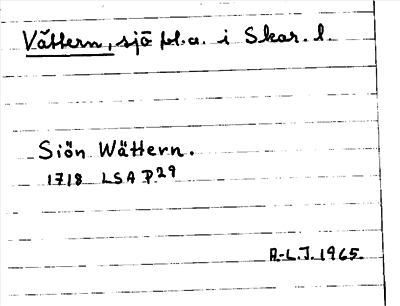 Vättern, sjö pl.a. i Skar. l.
Siön Wättern.
1718 LSA P.29
A.-L.J. 1965.